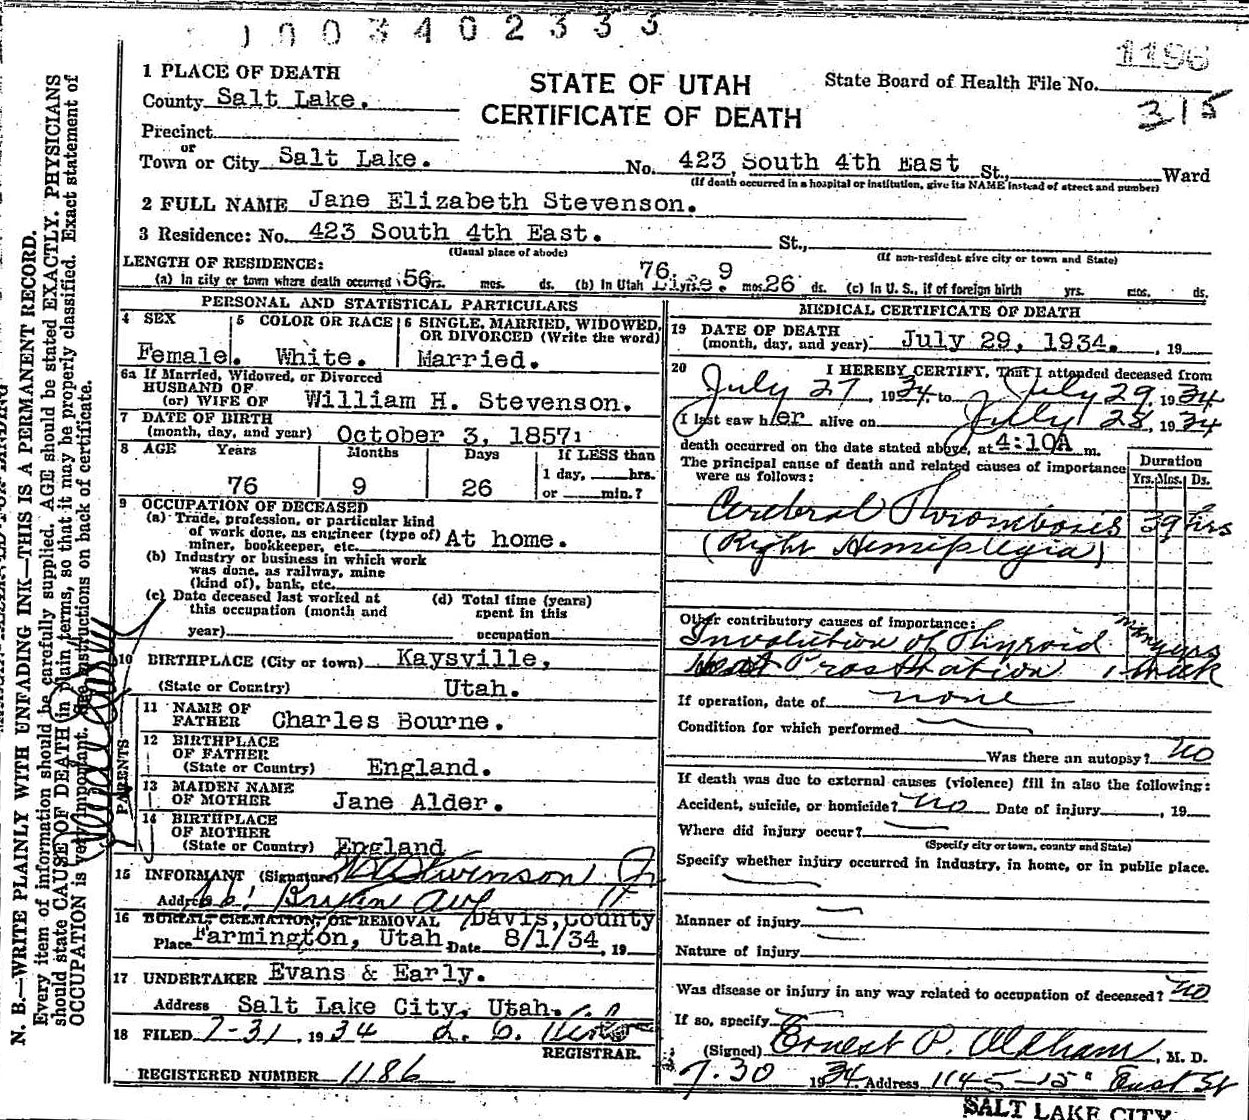 1003402333
1196
1 PLACE OF DEATH
STATE OF UTAH
CERTIFICATE OF DEATH
State Board of Health File No.
315
County Salt Lake.
Precinct
or
Town or City Salt Lake. No. 423, South 4th East St., Ward
(If death occurred in a hospital or institution, give its NAME instead of street and number)
2 FULL NAME Jane Elizabeth Stevenson.
3 Residence: No. 423 South 4th East. St.,
(Usual place of abode) (If non-resident give city or town and State)
LENGTH OF RESIDENCE: 76. 9
(a) In city or town where death occurred 56 yrs. mos. ds. (b) In Utah Life. yrs. mos. 26 ds. (c) In U. S., if of foreign birth yrs. mos. ds.
PERSONAL AND STATISTICAL PARTICULARS
4 SEX 5 COLOR OR RACE 6 SINGLE, MARRIED, WIDOWED, OR DIVORCED (Write the word)
Female. White. Married.
6a If Married, Widowed, or Divorced
HUSBAND OF
(or) WIFE OF William H. Stevenson.
7 DATE OF BIRTH
(month, day, and year) October 3, 1857
8 AGE Years Months Days If LESS than
1 day, hrs.
76 9 26 or min.?
9 OCCUPATION OF DECEASED
(a) Trade, profession, or particular kind
of work done, as engineer (type of)
miner, bookkeeper, etc. At home.
(b) Industry or business in which work
was done, as railway, mine
(kind of), bank, etc.
(c) Date deceased last worked at
this occupation (month and
year)
(d) Total time (years)
spent in this
occupation
10 BIRTHPLACE (City or town) Kaysville,
(State or Country) Utah.
PARENTS
11 NAME OF
FATHER Charles Bourne.
12 BIRTHPLACE
OF FATHER
(State or Country) England.
13 MAIDEN NAME
OF MOTHER Jane Alder.
14 BIRTHPLACE
OF MOTHER
(State or Country) England
15 INFORMANT (Signature) Jr
Address Bryan Ave
16 BURIAL, CREMATION, OR REMOVAL Davis, County
Place Farmington, Utah Date 8/1/34, 19
17 UNDERTAKER Evans & Early.
Address Salt Lake City, Utah.
18 FILED 7-31, 1934
REGISTRAR.
REGISTERED NUMBER 1186
MEDICAL CERTIFICATE OF DEATH
19 DATE OF DEATH
(month, day, and year) July 29, 1934., 19
20 I HEREBY CERTIFY, That I attended deceased from
July 27, 1934 to July 29, 1934
I last saw her alive on July 28, 1934
death occurred on the date stated above, at 4:10A m.
The principal cause of death and related causes of importance
were as follows:
Duration
Yrs. Mos. Ds.
Cerebral Thrombosis 39 hrs
(Right Hemiplegia)
Other contributory causes of importance:
Involution of Thyroid many yrs
Heat Prostration 1 week
If operation, date of none
Condition for which performed
Was there an autopsy? no
If death was due to external causes (violence) fill in also the following:
Accident, suicide, or homicide? no Date of injury, 19
Where did injury occur?
(Specify city or town, county and State)
Specify whether injury occurred in industry, in home, or in public place.
Manner of injury
Nature of injury
Was disease or injury in any way related to occupation of deceased? no
If so, specify
(Signed) Ernest P. Oldham, M. D.
7.30 1934 Address 1145-15" East St
SALT LAKE CITY
N. B.—WRITE PLAINLY WITH UNFADING INK—THIS IS A PERMANENT RECORD.
Every item of information should be carefully supplied. AGE should be stated EXACTLY. PHYSICIANS
should state CAUSE OF DEATH in plain terms, so that it may be properly classified. Exact statement of
OCCUPATION is very important. See instructions on back of certificate.